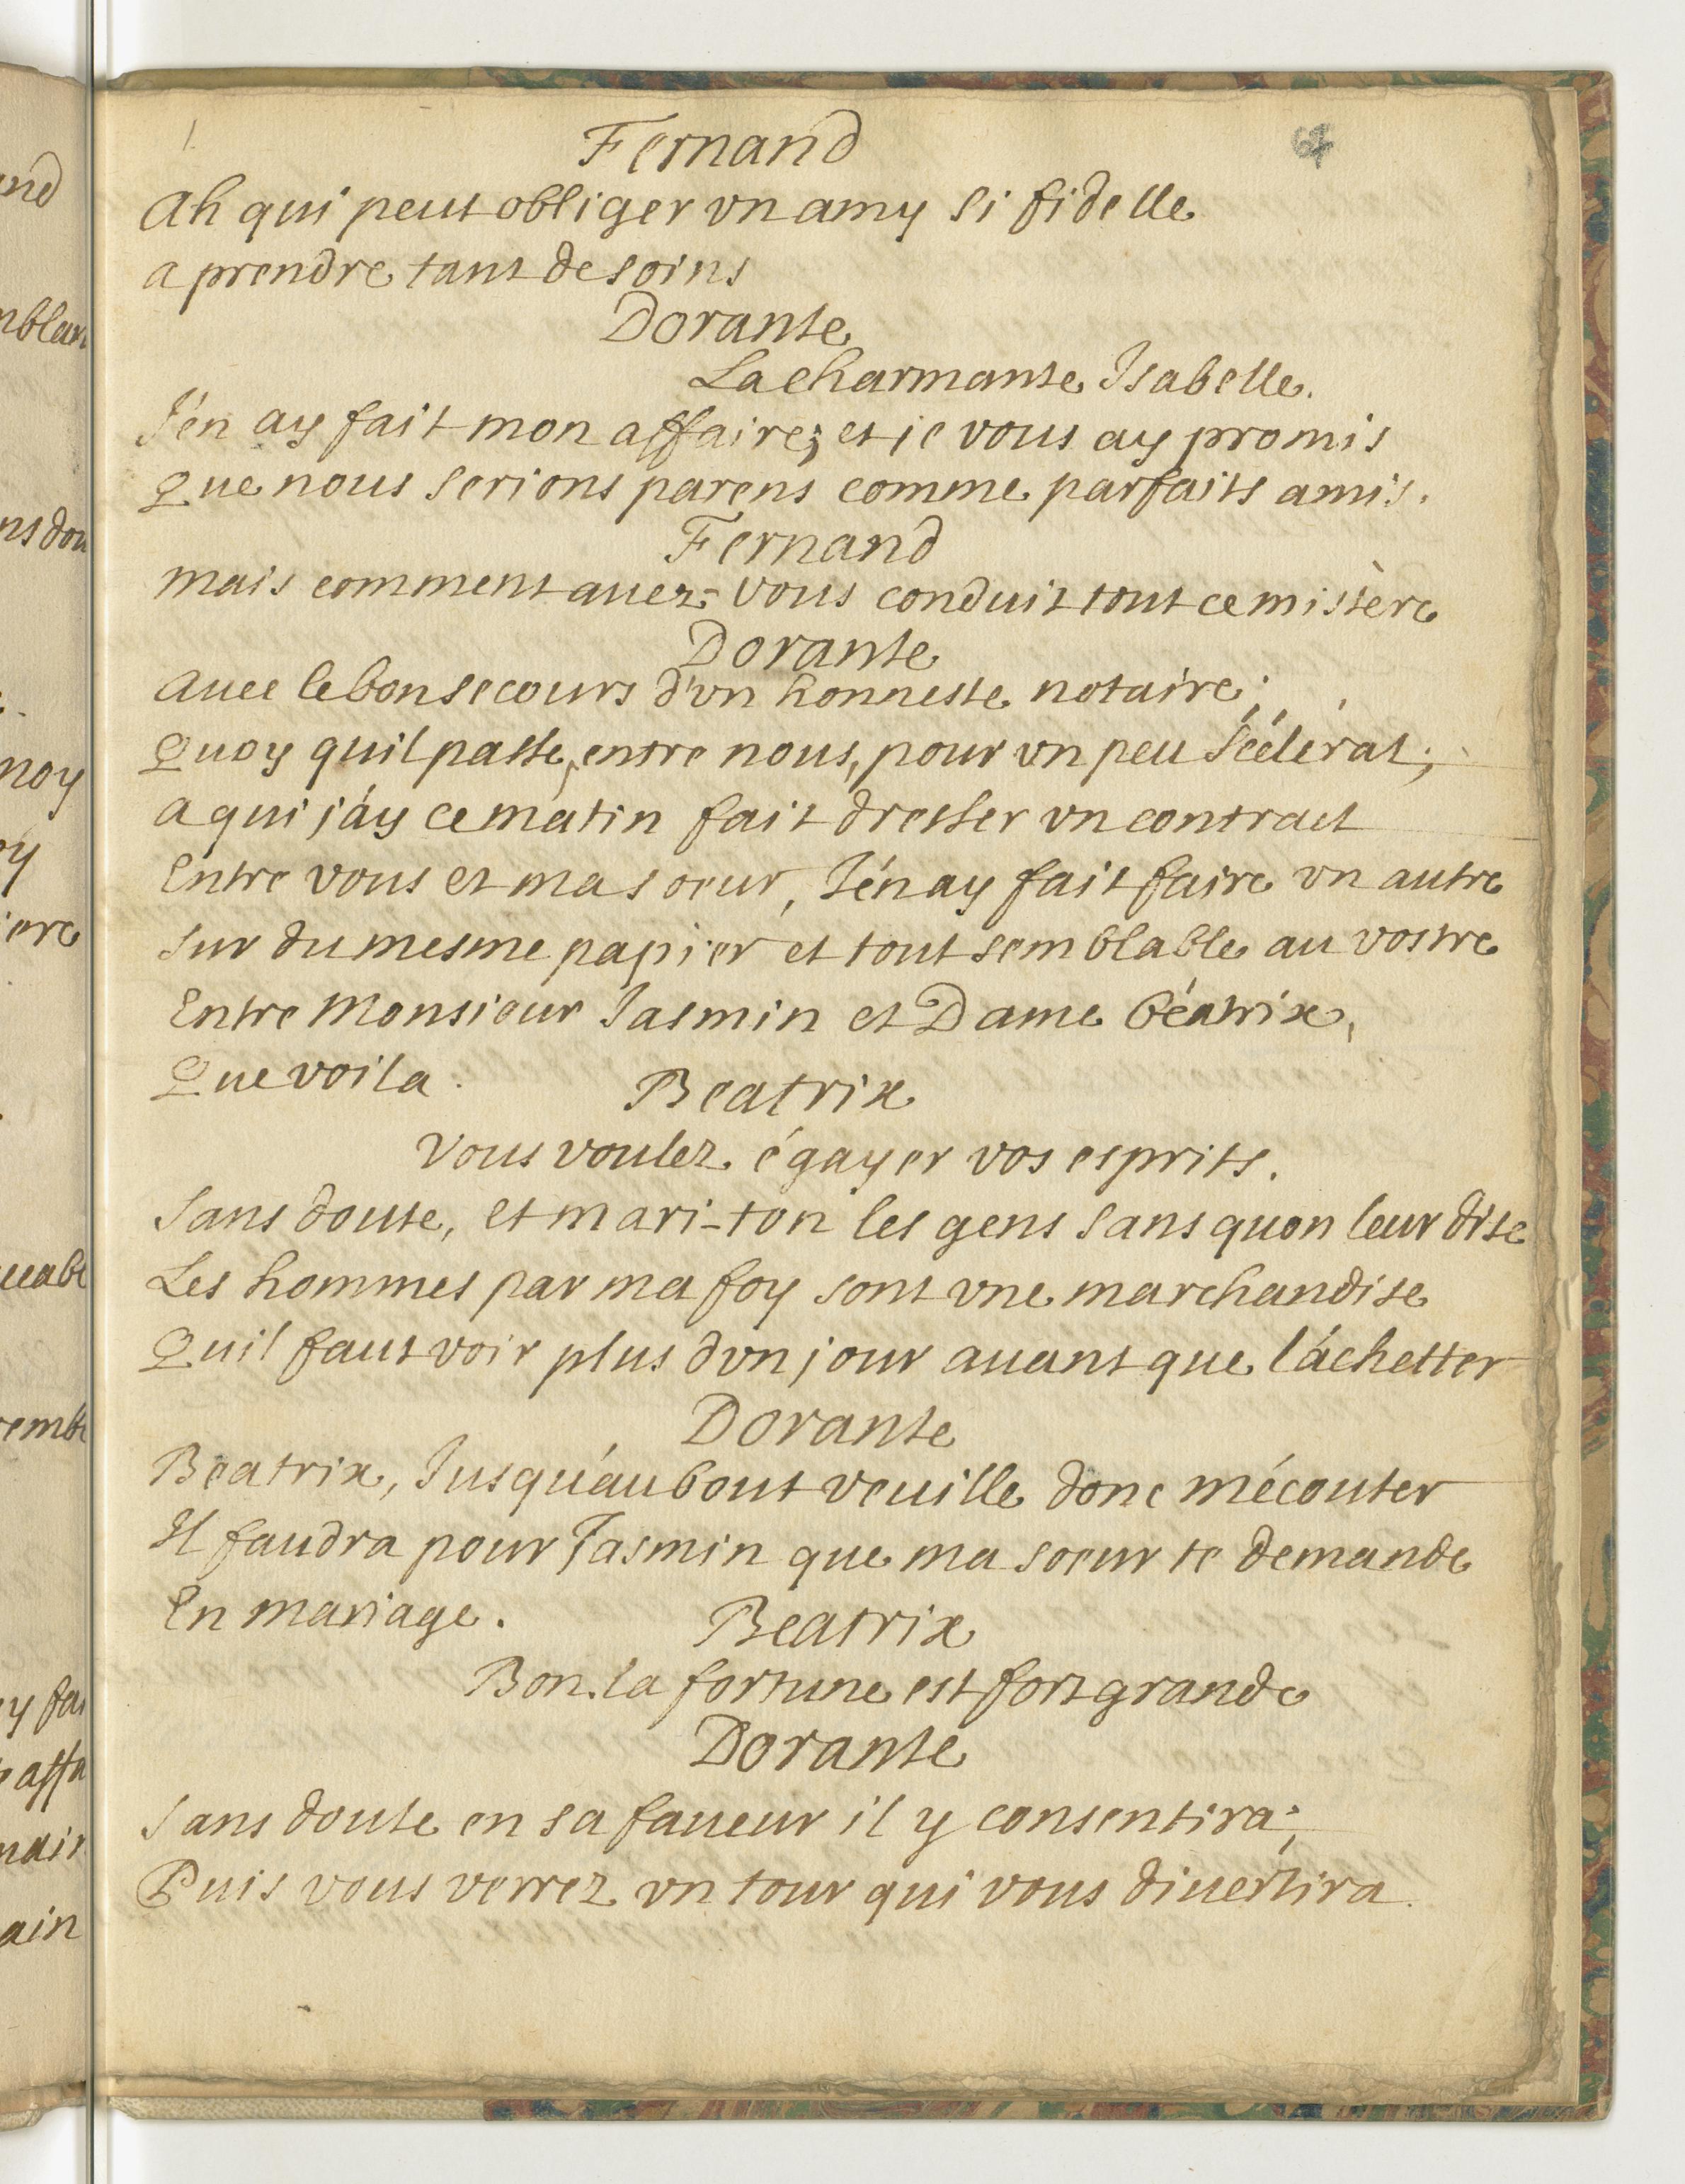 Fernand
Ah qui peut obliger vn amy si fidelle
a prendre tant de soins
Dorante
La charmante Isabelle.
J'en ay fait mon affaire; et je vous ay promis
Que nous serions parens comme parfaits amis.
Fernand
mais comment auez-vous conduit tout ce mistère
Dorante
Auec le bon secours d'vn honneste notaire;
Quoy quil passe, entre nous, pour vn peu scélérat;
a qui j'ay ce matin fait dresser vn contract
Entre vous et ma soeur, J'en ay fait faire vn autre
sur du mesme papier et tout semblable au vostre
Entre Monsieur Jasmin et Dame Béatrix,
Que voila.
Beatrix
Vous voulez égayer vos esprits.
Sans doute, et mari-t'on les gens sans quon leur dise
Les hommes par ma foy sont vne marchandise
Quil faut voir plus dvn jour auant que l'achetter
Dorante
Beatrix, Jusqu'au bout veuille donc m'écouter
Il faudra pour Jasmin que ma soeur te demande
En mariage.
Beatrix
Bon. la fortune est fort grande
Dorante
Sans doute en sa faueur il y consentira;
Puis vous verrez vn tour qui vous diuertira.